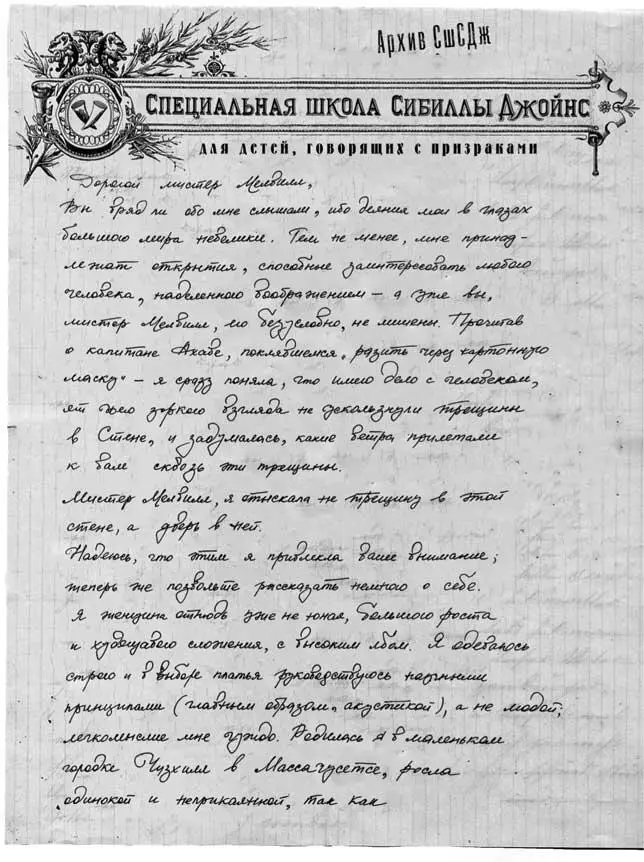 Архив СшСДж
Специальная школа Сибиллы Джойнс
для детей, говорящих с призраками
Дорогой мистер Мелвилл,
Вы вряд ли обо мне слышали, ибо деяния мои в глазах
большого мира невелики. Тем не менее, мне принад-
лежат открытия, способные заинтересовать любого
человека, наделенного воображением – а уже вы,
мистер Мелвилл, его безусловно, не лишены. Прочитав
о капитане Ахаве, поклявшемся „разить через картонную
маску“ – я сразу поняла, что имею дело с человеком,
от чьего зоркого взгляда не ускользнули трещины
в Стене, и задумалась, какие ветра прилетали
к вам сквозь эти трещины.
Мистер Мелвилл, я отыскала не трещину в этой
стене, а дверь в ней.
Надеюсь, что этим я привлекла ваше внимание;
теперь же позвольте рассказать немного о себе.
Я женщина отнюдь уже не юная, большого роста
и худощавого сложения, с высоким лбом. Я одеваюсь
строго и в выборе платья руководствуюсь научными
принципами (главным образом, акустикой), а не модой;
легкомыслие мне чуждо. Родилась я в маленьком
городке Чузхилл в Массачусетсе, росла
одинокой и неприкаянной, так как